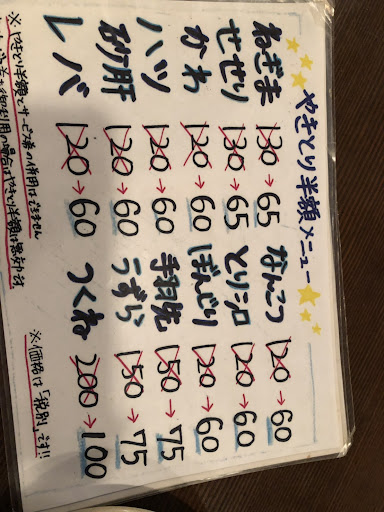 やきとり半額メニュー
ねぎま 130→65 なんこつ 120→60
せせり 130→65 とりシロ 120→60
かわ 120→60 ぼんじり 120→60
ハツ 120→60 手羽先 150→75
砂肝 120→60 うずら 150→75
レバ 120→60 つくね 200→100
※やきとり半額です 券の併用はできません
※価格は「税別」です!!